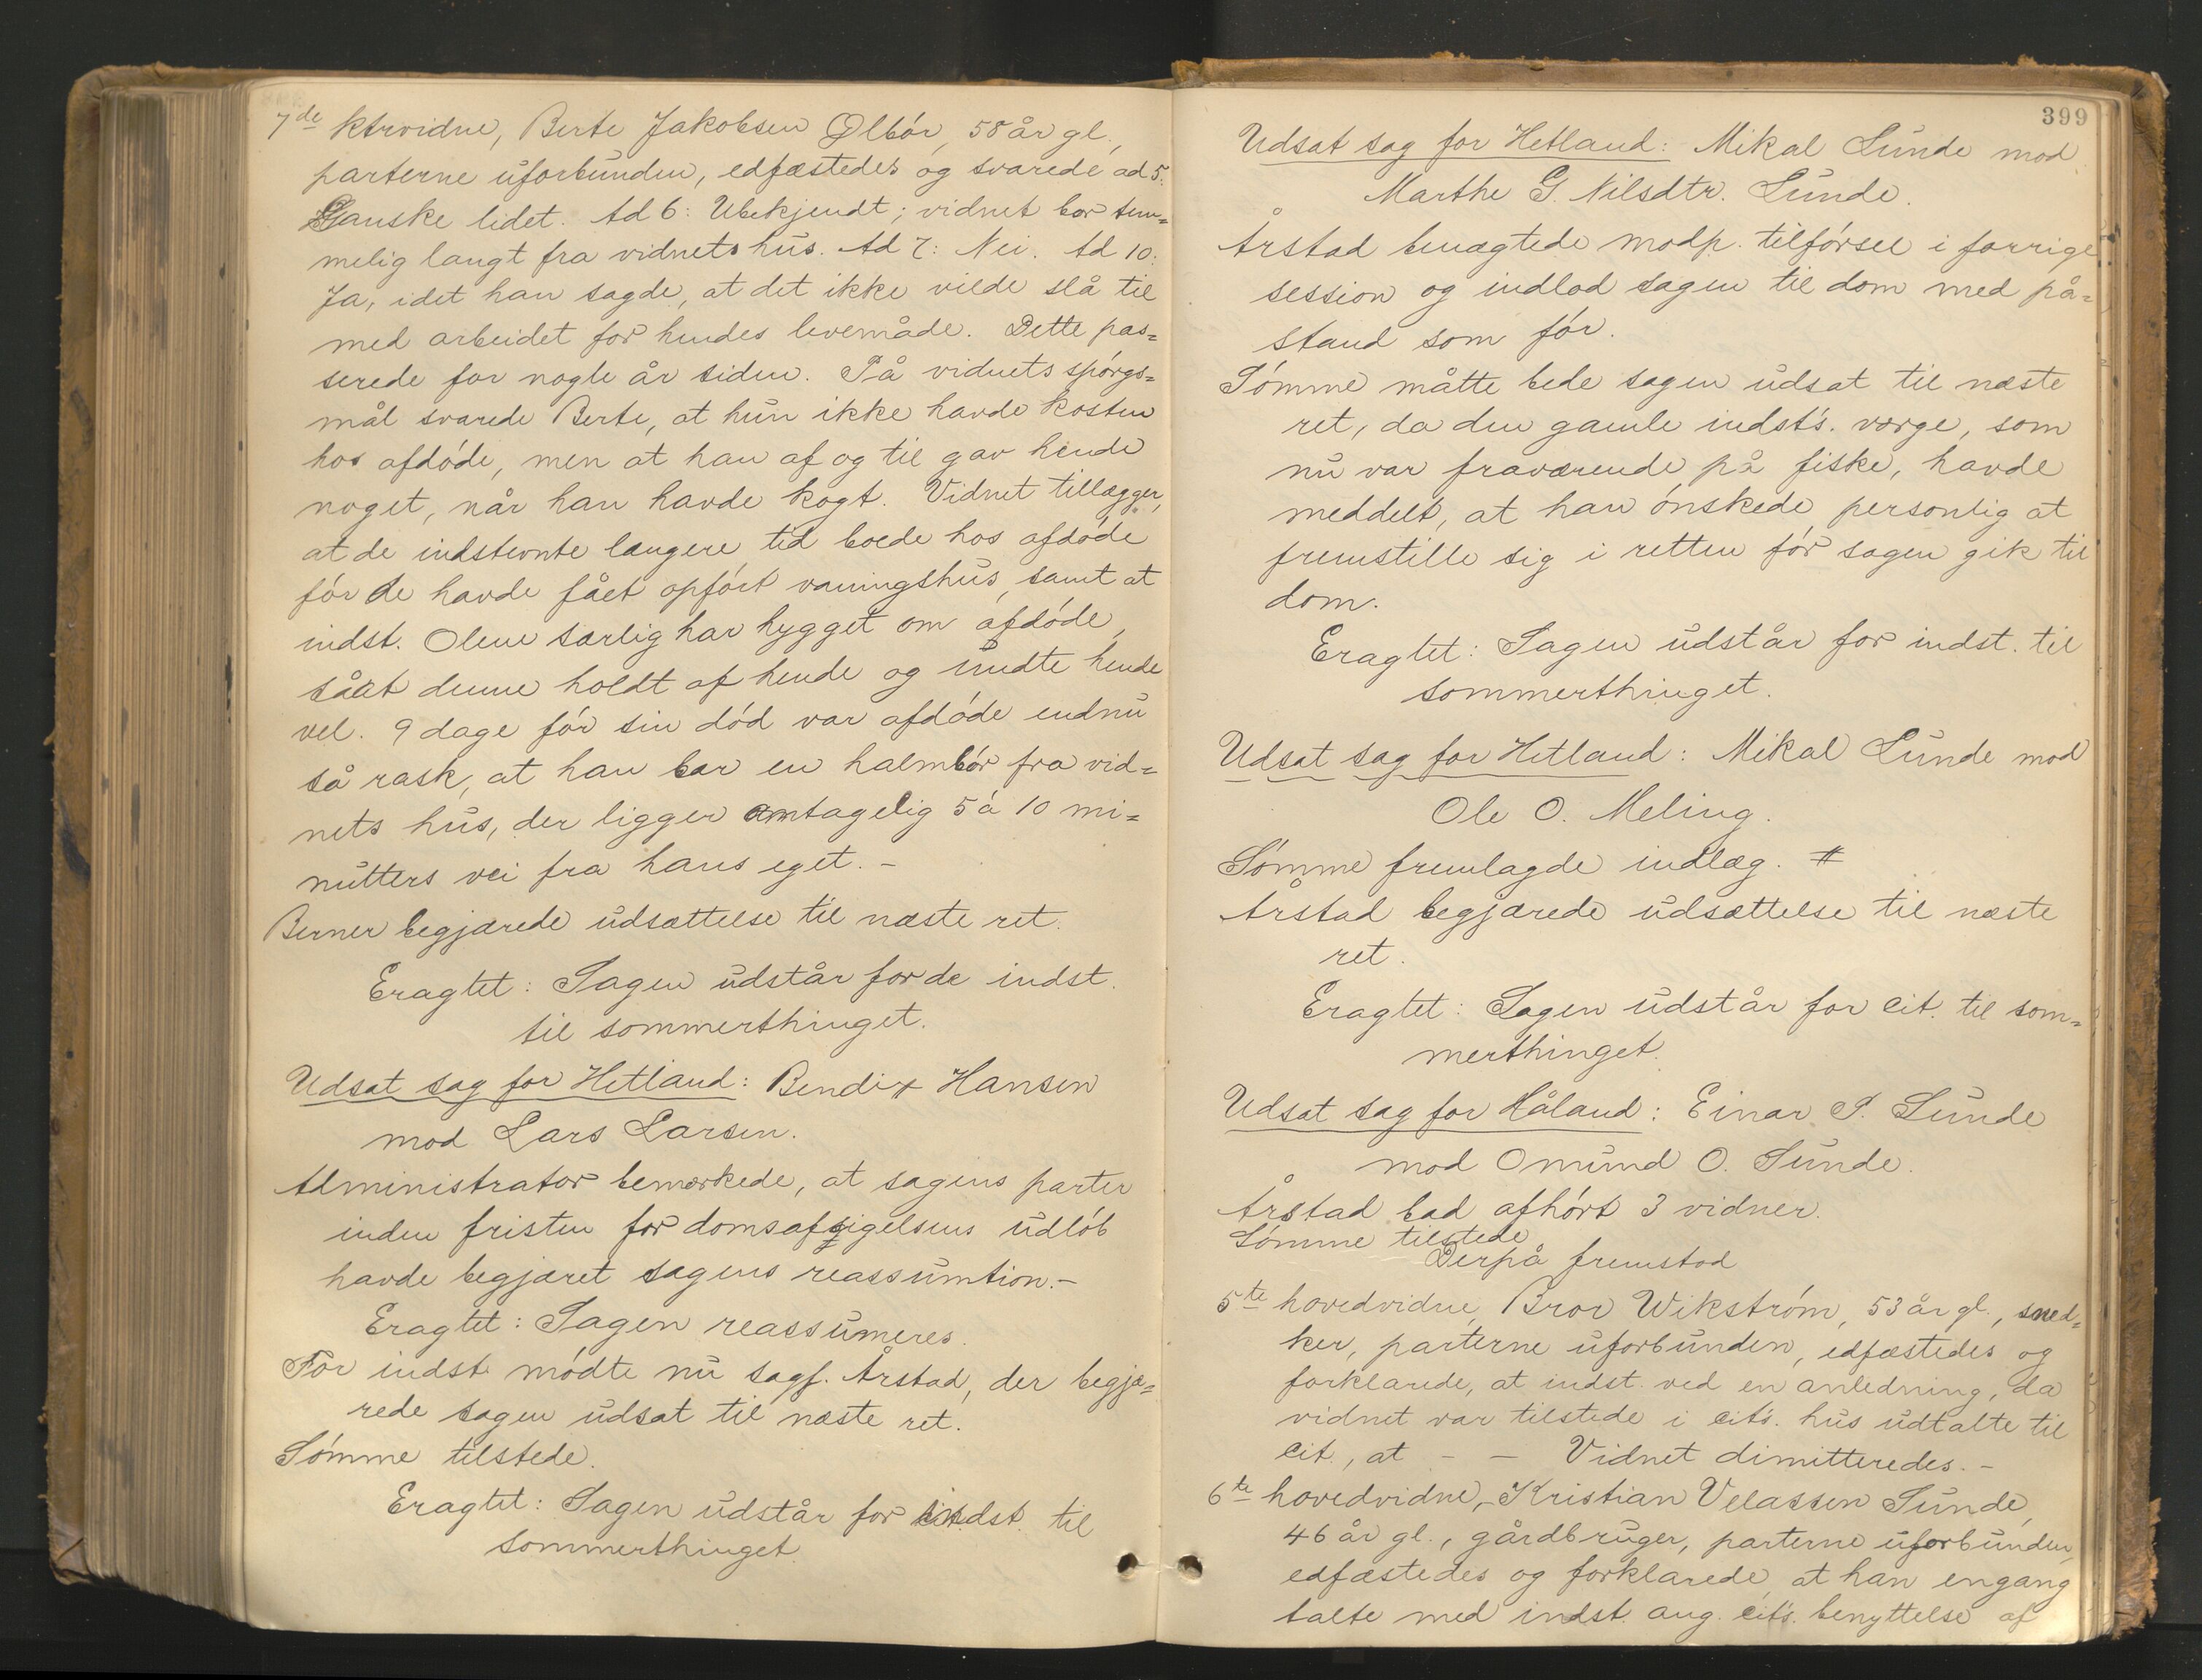 7de ktrvidne, Berte Jakobsen Ølbór, 58 år gl.,
parterne uforbunden, edfæstedes og svarede ad 5:
Ganske lidet. Ad 6: Ubekjendt; vidnet bor tem=
melig langt fra vidnets hus. Ad 7: Nei. Ad 10:
Ja, idet han sagde, at det ikke vilde slå til
med arbeidet for hendes levemåde. Dette pas=
serede for nogle år siden. På vidnets spórgs=
mål svarede Berte, at hun ikke havde kosten
hos afdóde, men at han af og til gav hende
noget, når han havde kogt. Vidnet tillægger,
at de indstevnte længere tid boede hos afdóde
fór de havde fået opfórt vaningshus, samt at
indst. Olene særlig har hygget om afdóde,
såat denne holdt af hende og undte hende
vel. 9 dage fór sin dód var afdóde endnu
så rask, at han bar en halmbór fra vid=
nets hus, der ligger antagelig 5 á 10 mi=
nutters vei fra hans eget. –
Berner begjærede udsættelse til næste ret.
Eragtet: Sagen udstår for de indst.
til sommerthinget.
Udsat sag for Hetland: Bendix Hansen
mod Lars Larsen.
Administrator bemærkede, at sagens parter
inden fristen for domsafsigelsens udlób
havde begjæret sagens reassumtion. –
Eragtet: Sagen reassumeres.
For indst. módte nu sagf. Årstad, der begjæ=
rede sagen udsat til næste ret.
Sómme tilstede.
Eragtet: Sagen udstår for indst. til
sommerthinget.
399
Udsat sag for Hetland: Mikal Lunde mod
Marthe G. Nilsdtr. Lunde.
Årstad benægtede modp. tilfórsel i forrige
session og indlod sagen til dom med på=
stand som fór.
Sómme måtte bede sagen udsat til næste
ret, da den gamle indst's. værge, som
nu var fraværende på fiske, havde
meddelt, at han ónskede personlig at
fremstille sig i retten fór sagen gik til
dom.
Eragtet: Sagen udstår for indst. til
sommerthinget.
Udsat sag for Hetland: Mikal Lunde mod
Ole O. Meling.
Sómme fremlagde indlæg. #
Årstad begjærede udsættelse til næste
ret.
Eragtet: Sagen udstår for cit. til som=
merthinget.
Udsat sag for Håland: Einar P. Sunde
mod Omund O. Sunde.
Årstad bad afhórt 3 vidner.
Sómme tilstede
Derpå fremstod
5te hovedvidne, Bror Wikstróm, 53 år gl., sned=
ker, parterne uforbunden, edfæstedes og
forklarede, at indst. ved en anledning, da
vidnet var tilstede i cit's. hus udtalte til
cit., at – – Vidnet dimitteredes. –
6te hovedvidne, Kristian Velassen Sunde,
46 år gl., gårdbruger, parterne uforbunden,
edfæstedes og forklarede, at han engang
talte med indst. ang. cit's. benyttelse af